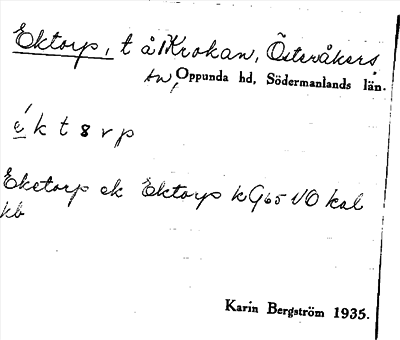 Ektorp, t å Krokan, Österåkers
sn, Oppunda hd, Södermanlands län.
é k t 8 r p
Eketorp ek Ektorp kG65 VO kal
kb
Karin Bergström 1935.